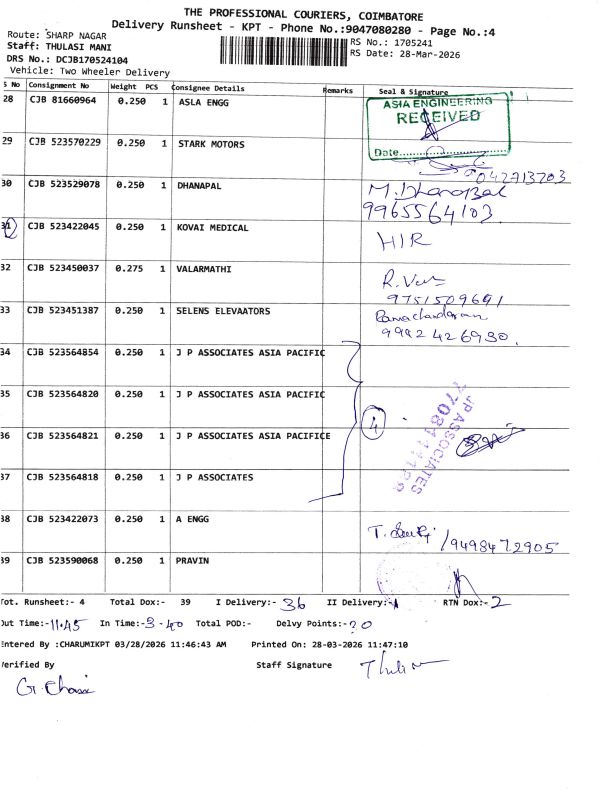 THE PROFESSIONAL COURIERS, COIMBATORE
Delivery Runsheet - KPT - Phone No.:9047080280 - Page No.:4
Route: SHARP NAGAR
Staff: THULASI MANI
RS No.: 1705241
DRS No.: DCJB170524104
RS Date: 28-Mar-2026
Vehicle: Two Wheeler Delivery
S No Consignment No Weight PCS Consignee Details Remarks Seal & Signature
28 CJB 81660964 0.250 1 ASLA ENGG
ASIA ENGINEERING
RECEIVED
Date
29 CJB 523570229 0.250 1 STARK MOTORS
30 CJB 523529078 0.250 1 DHANAPAL M.Dhanapal
9965564103
31 CJB 523422045 0.250 1 KOVAI MEDICAL HIR
32 CJB 523450037 0.275 1 VALARMATHI
9751509691
33 CJB 523451387 0.250 1 SELENS ELEVAATORS Ramachandaran
9992426930.
34 CJB 523564854 0.250 1 J P ASSOCIATES ASIA PACIFIC
35 CJB 523564820 0.250 1 J P ASSOCIATES ASIA PACIFIC
36 CJB 523564821 0.250 1 J P ASSOCIATES ASIA PACIFICE 4
JP ASSOCIATES
37 CJB 523564818 0.250 1 J P ASSOCIATES
38 CJB 523422073 0.250 1 A ENGG /9498472905
39 CJB 523590068 0.250 1 PRAVIN
Tot. Runsheet:- 4 Total Dox:- 39 I Delivery:- 36 II Delivery:-1 RTN Dox:- 2
Out Time:-11.45 In Time:-3-40 Total POD:- Delvy Points:-20
Entered By :CHARUMIKPT 03/28/2026 11:46:43 AM Printed On: 28-03-2026 11:47:10
Verified By Staff Signature